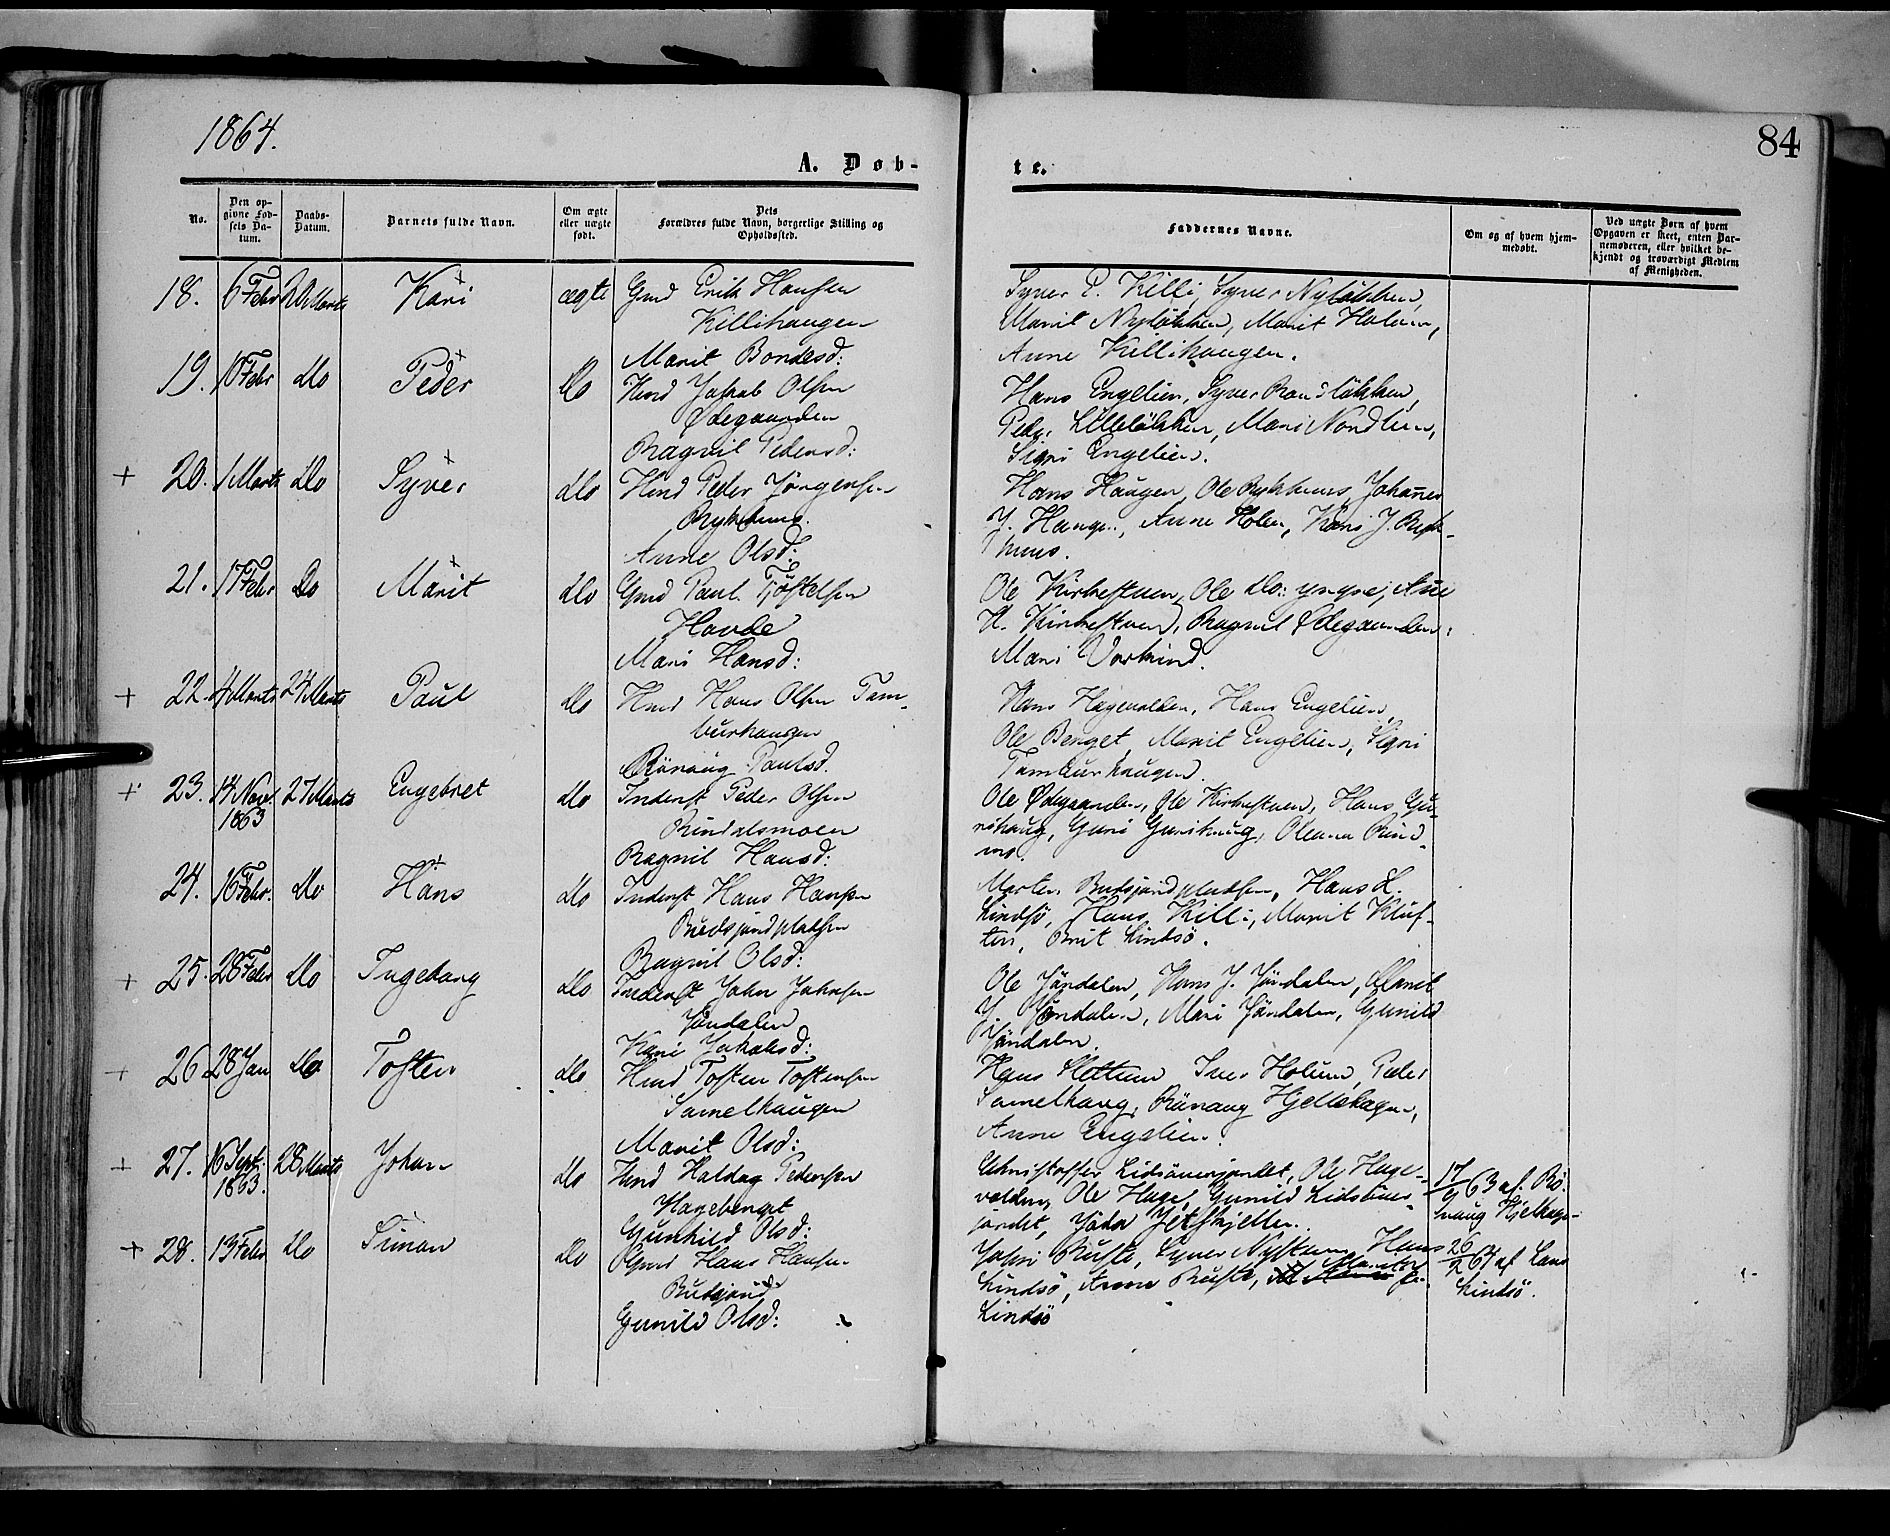 1864.
84
A. Døb-
te.
No.
Den op-
givne Fød-
sels Da-
tum.
Daabs-
Datum.
Barnets fulde Navn.
Om ægte
eller uægte
født.
Dets
Forældres fulde Navn, borgerlige Stilling og
Opholdssted.
Faddernes Navne.
Om og af hvem hjem-
medøbt.
Ved uægte Børn af hvem
Opgaven er skeet, enten Bar-
nemoderen, eller hvilket be-
kjendt og troværdigt Medlem
af Menigheden.
18. 6 Febr 20 Marts Kari ægte Gmd Erik Hansen
Killihaugen
Marit Bondesd:
Syver P. Killi, Syver Nyløkken,
Marit Nyløkken, Marit Holen,
Anne Killihaugen.
19. 10 Febr do Peder do Hmd Jakob Olsen
Ødegaarden
Ragnil Pedersd:
Hans Engelien, Syver Randløkken,
Peder Lilleløkken, Mari Nordlien,
Signi Engelien.
+ 20. 1 Marts do Syver do Hmd Peder Jørgensen
Rykhuus.
Anne Olsd:
Hans Haugen, Ole Rykhuus, Johannes
J. Haugen, Anne Holen, Kari J. Ryk-
huus.
21. 17 Febr Do Marit do Gmd Paul Tjøstelsen
Hovde
Mari Hansd:
Ole Kirkestuen, Ole do: yngre, Ane
H. Kirkestuen, Ragnil Ødegaarden,
Mari Vorkind.
+ 22. 4 Marts 24 Marts Paul do Hmd Hans Olsen Tam-
burhaugen
Rønaug Paulsd.
Hans Hagevolden, Hans Engelien,
Ole Benget, Marit Engelien, Signi
Tamburhaugen.
+ 23. 14 Nov. 27 Marts Engebret do Inderst Peder Olsen
1863
Rindalsmoen
Ragnil Hansd:
Ole Ødegaarden, Ole Kirkestuen, Hans Gu-
rihaug, Guri Gurihaug, Oleana Rind-
mo.
24. 16 Febr. do Hans do Inderst Hans Hansen
Budsjordpladsen
Ragnil Olsd:
Morten Budsjordpladsen, Hans H.
Lindsø, Hans Killi, Marit Kluf-
ten, Brit Lindsø.
+ 25. 28 Febr do Ingeborg do Inderst John Johnsen
Jøndalen
Kari Jakobsd:
Ole Jøndalen, Hans J. Jøndalen, Marit
J. Jøndalen, Mari Jøndalen, Gunild
Jøndalen.
+ 26 28 Jan do Tosten do Hmd Tosten Tostensen
Somelhaugen
Marit Olsd:
Hans Slettum Iver Holum, Peder
Somelhaug, Rønaug Hjellehagen,
Anne Engelien.
+ 27. 16 Sept. 28 Marts Johan do Hmd Haldog Pedersen
1863.
Hagebenget
Gunhild Olsd:
Christoffer Lidsøuerjordet, Ole Hage-
volden, Ole Hage, Gunild Lidsøuer-
jordet,
17/9 63 af Rø-
naug Hjelhage-
+ 28. 13 Febr do Simen do Gmd Hans Hansen
Budsjord
Gunild Olsd:
John Ruste, Syver Nystuen, Hans
Lindsø, Anne Ruste, Marit
Lindsø
26/2 63 af Hans
Lindsø.